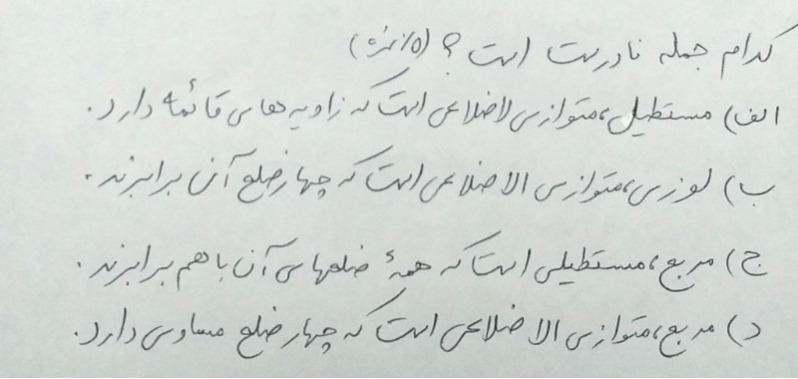 کدام جمله نادرست است؟ (۰/۵ نمره)
الف) مستطیل، متوازی الاضلاعی است که زاویه های قائمه دارد.
ب) لوزی، متوازی الاضلاعی است که چهار ضلع آن برابرند.
ج) مربع، مستطیلی است که همهٔ ضلعهای آن با هم برابرند.
د) مربع، متوازی الاضلاعی است که چهار ضلع مساوی دارد.